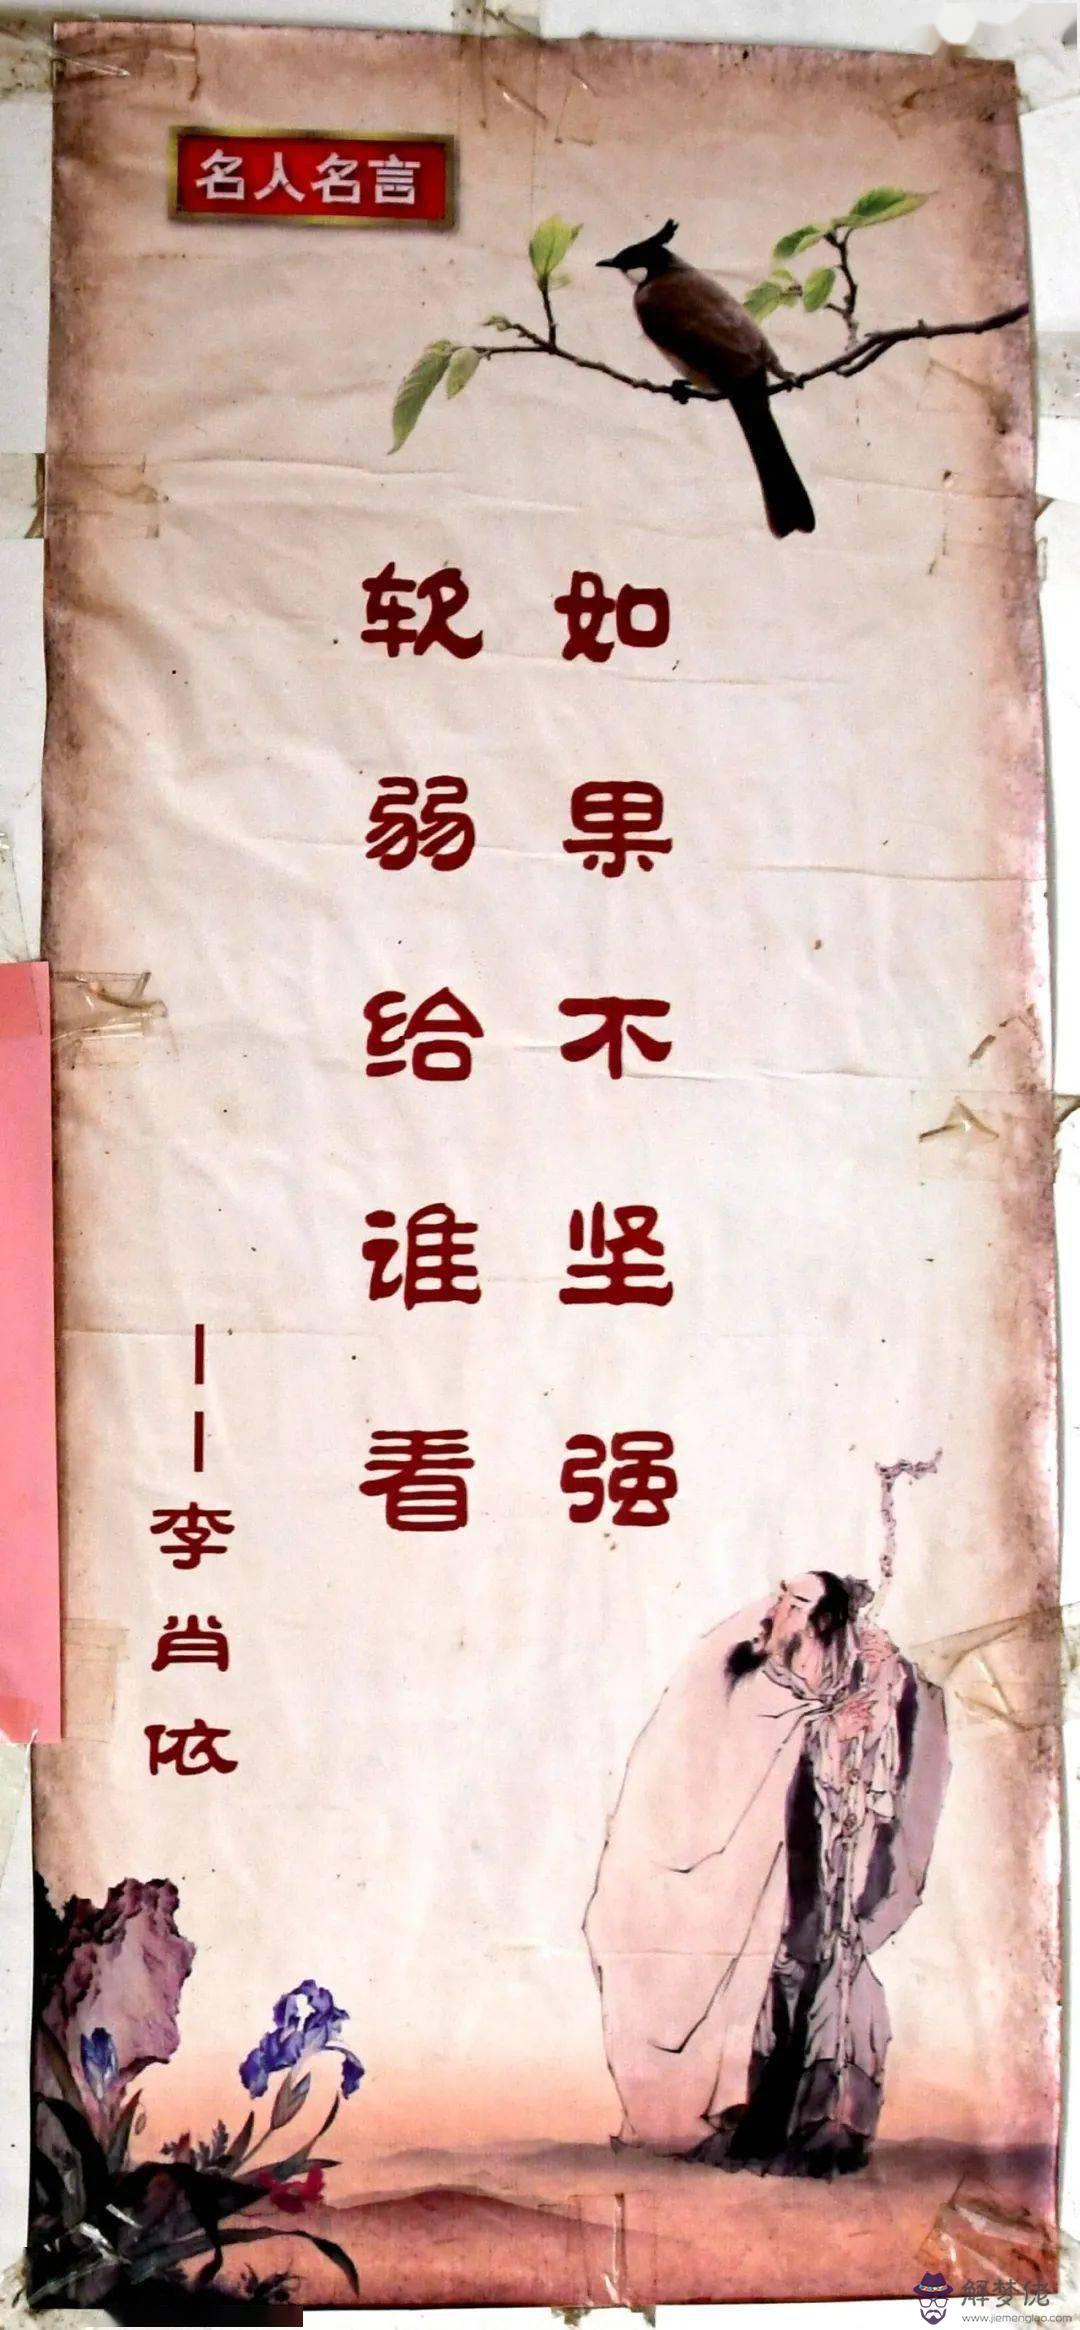 名人名言
如果不坚强
软弱给谁看
——李肖依
解梦佬
www.jiemenglao.com